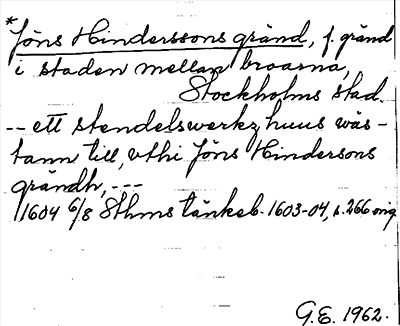 *Jöns Hinderssons gränd, f. gränd
i staden mellan broarna,
Stockholms stad.
-- ett stendelswerkz huus wäs-
tann till, vthi Jöns Hindersons
grändh, ---
1604 6/8 Sthms tänkeb. 1603-04, s. 266 orig
G.E. 1962.